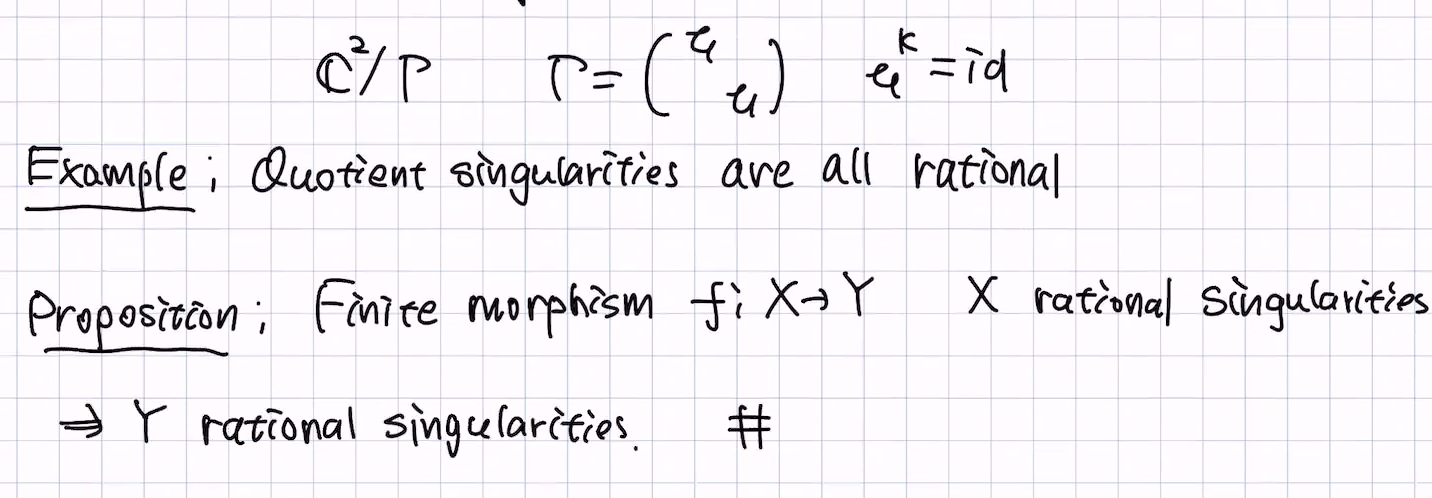 ℂ²/Γ Γ = (ξ ξ) ξ^k = id
Example; Quotient singularities are all rational
Proposition; Finite morphism f: X→Y X rational singularities
⇒ Y rational singularities. #